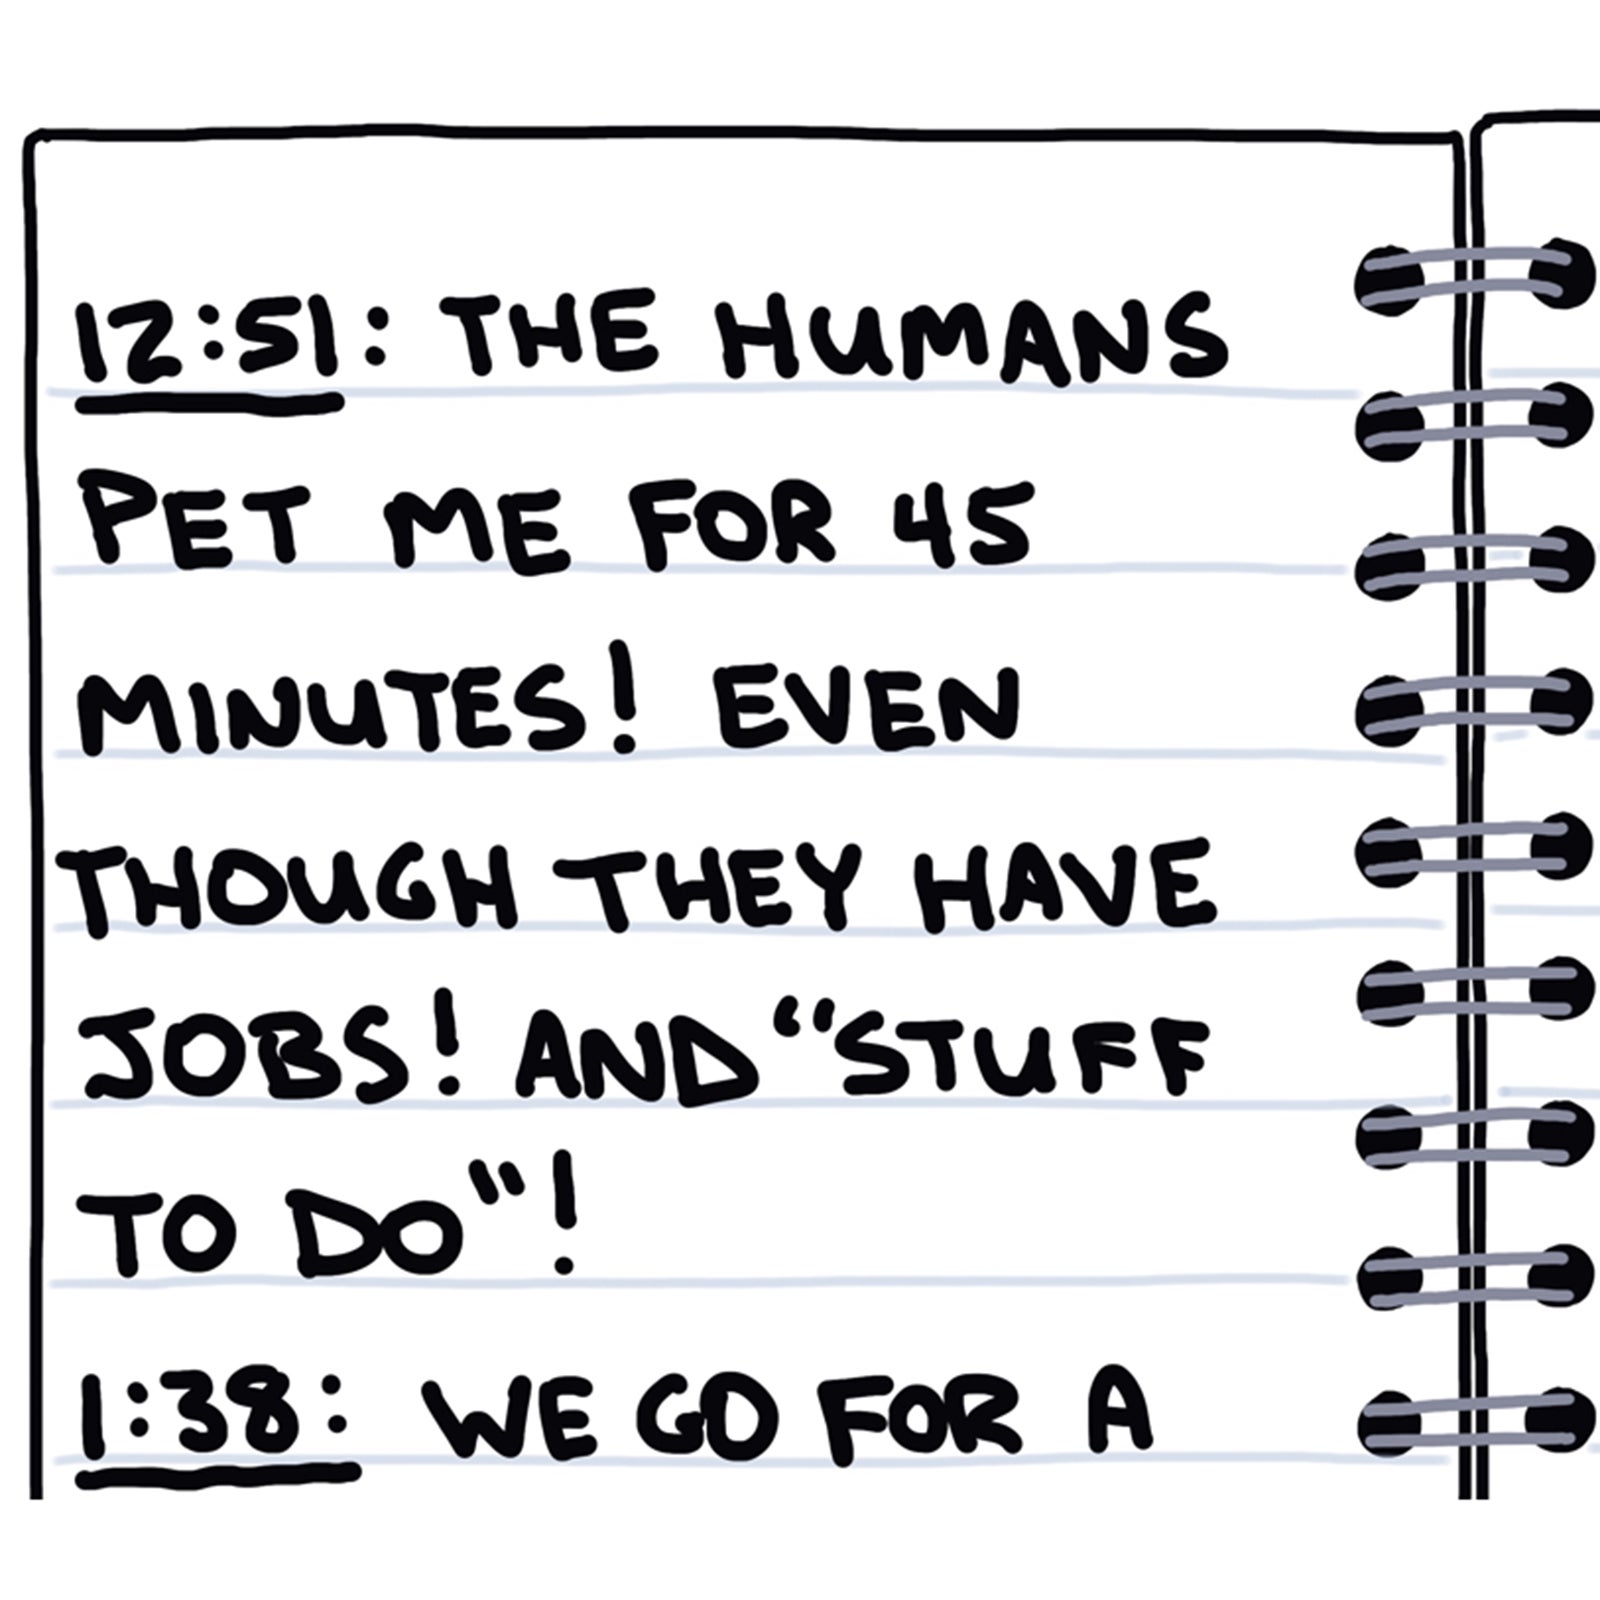 12:51: THE HUMANS
PET ME FOR 45
MINUTES! EVEN
THOUGH THEY HAVE
JOBS! AND “STUFF
TO DO”!
1:38: WE GO FOR A